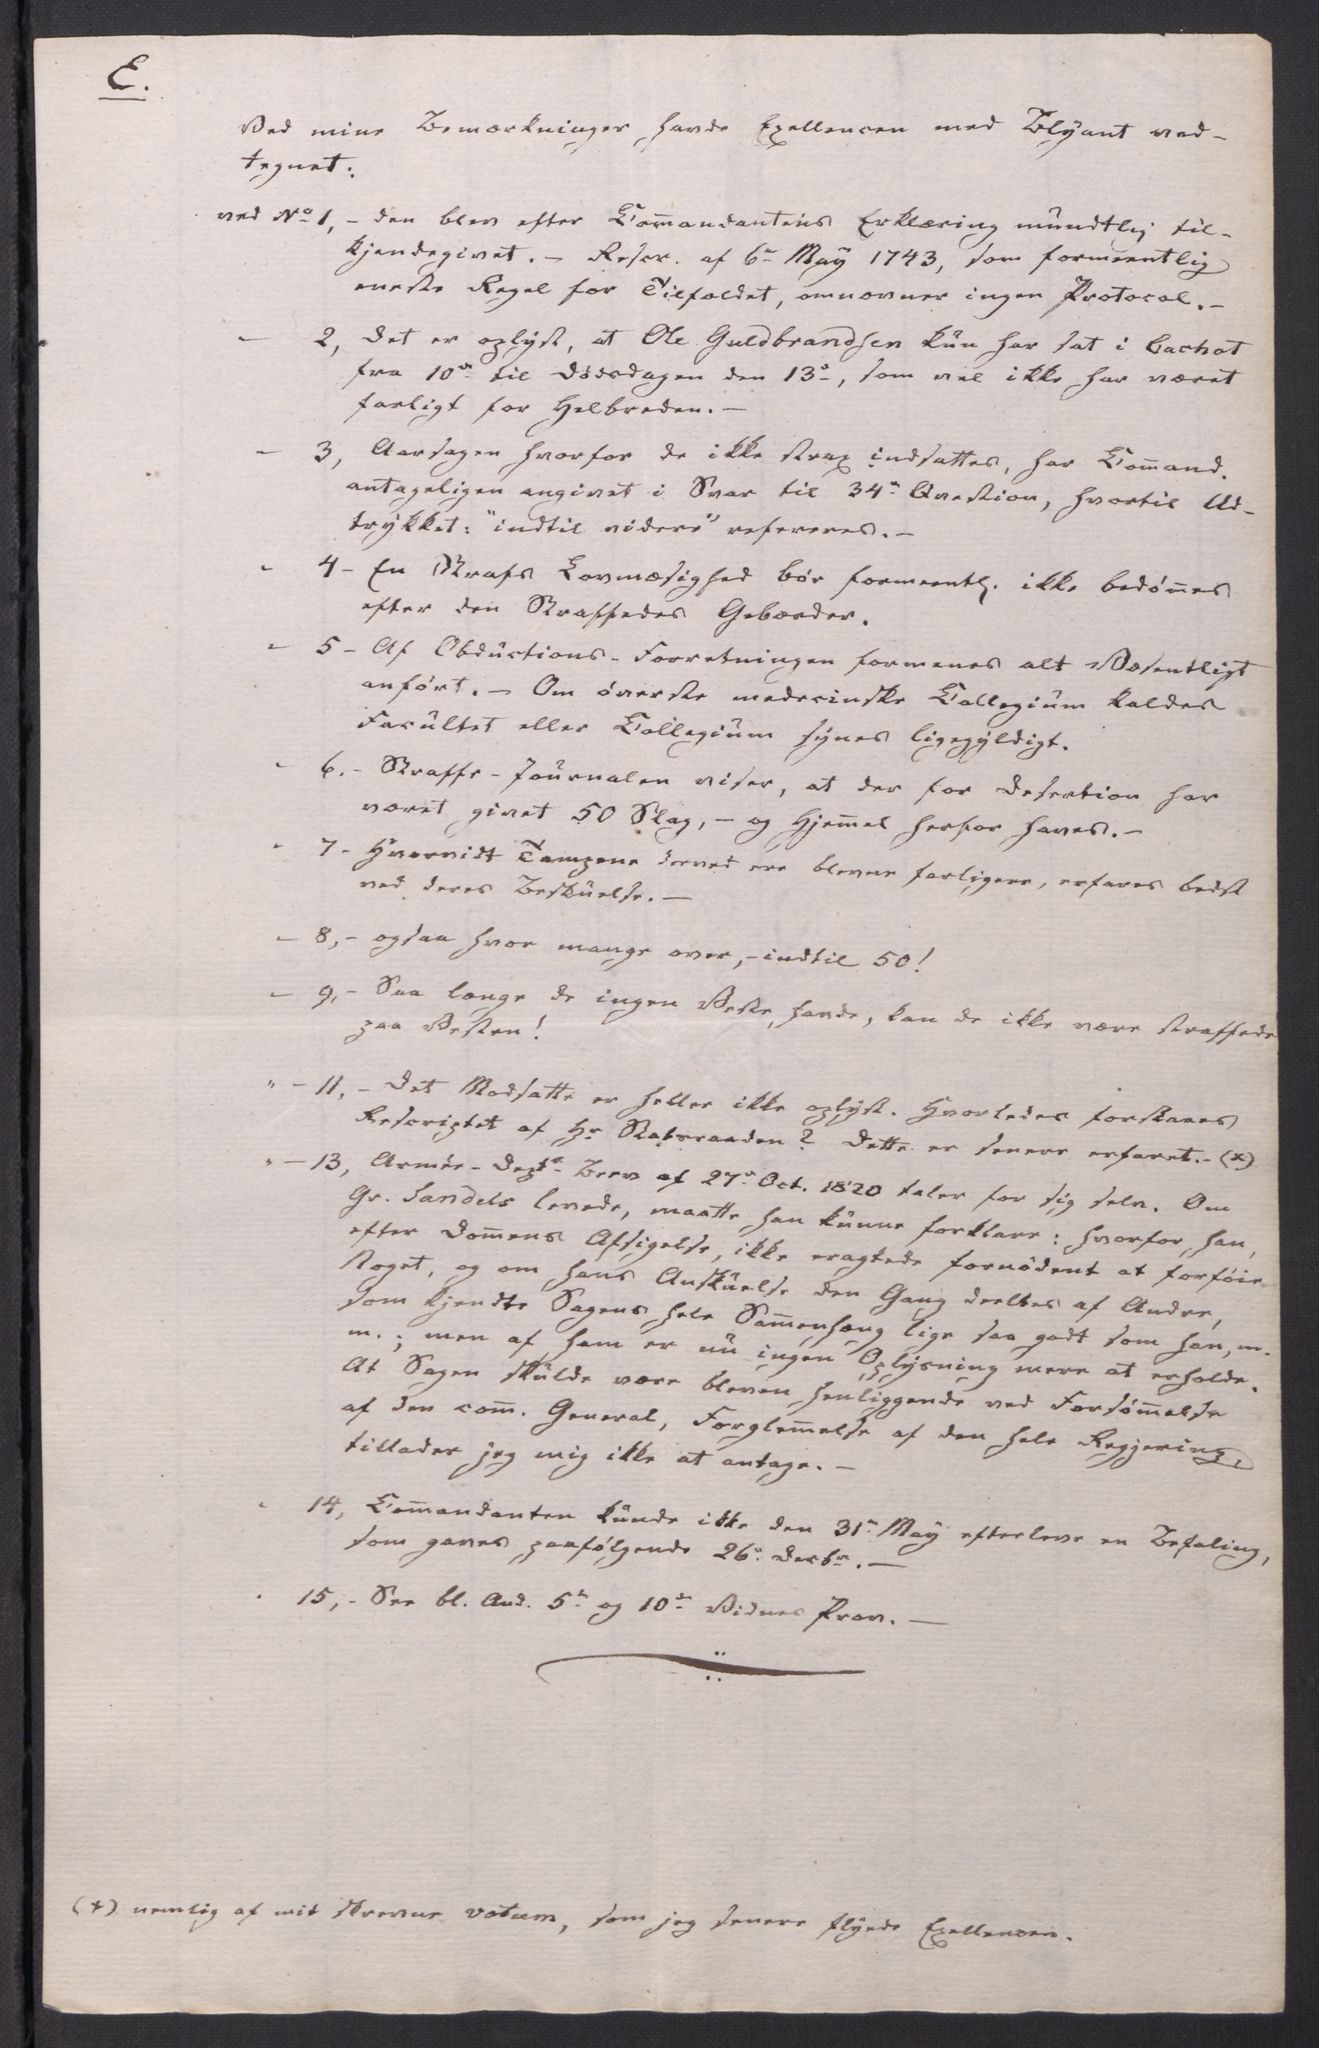 E.
Ved mine Bemærkninger havde Exellencen med Blÿant ved-
tegnet:
ved No 1, – den blev efter Com̅andantens Erklæring mündtlig til-
kjendegivet. – Rescr. af 6te Maÿ 1743, som formeentlig
eneste Regel for Tilfældet, omnævner ingen Protocol. –
– 2, Det er oplÿst, at Ole Guldbrandsen kün har sat i Cachot
fra 10de til Dødsdagen den 13de, som vel ikke har været
farligt for Helbreden. –
– 3, Aarsagen hvorfor de ikke strax indsattes, har Com̅and.
antageligen angivet i Svar til 34te Qvæstion, hvortil Ud-
trÿkket: "indtil videre" refereres. –
– 4 – En Strafs Lovmæsighed bør formeentl. ikke bedøm̅es
efter den Straffedes Gebærder.
– 5 – Af Obdüctions-Forretningen formenes alt Væsentligt
anført. – Om øverste medecinske Collegiüm kaldes
Facültet eller Collegiüm sÿnes ligegÿldigt.
– 6. – Straffe-Joürnalen viser, at der for Desertion har
været givet 50 Slag, – og Hjem̅el herfor haves. –
– 7 – Hvorvidt Tampene derved ere blevne farligere, erfares bedst
ved deres Besküelse. –
– 8, – ogsaa hvor mange over, – indtil 50!
– 9, – Saa længe de ingen Veste havde, kan de ikke være straffede
paa Vesten!
" – 11, – Det Modsatte er heller ikke oplÿst. Hvorledes forstaaes
Rescriptet af Hr Statsraaden? Dette er senere erfaret. – (x)
" – 13, Armée-Depts Brev af 27de Oct. 1820 taler for sig selv. Om
Gr. Sandels levede, maatte han künne forklare: hvorfor han,
efter Dom̅ens Afsigelse, ikke eragtede fornødent at forføie
Noget, og om hans Anskuelse den Gang deeltes af Andre,
som kjendte Sagens hele Sam̅enhæng lige saa godt som han, m.
m.; men af ham er nü ingen Oplÿsning mere at erholde.
At Sagen skülde være bleven henliggende ved Forsøm̅else
af den com̅. General, Forglem̅else af den hele Regjering,
tillader jeg mig ikke at antage. –
– 14, Com̅andanten künde ikke den 31te Maÿ efterleve en Befaling,
som gaves paafølgende 26de Decbr. –
– 15, – See bl. And. 5te og 10de Vidnes Prov. –
(x) nemlig af mit skrevne votum, som jeg senere flÿede Exellencen.